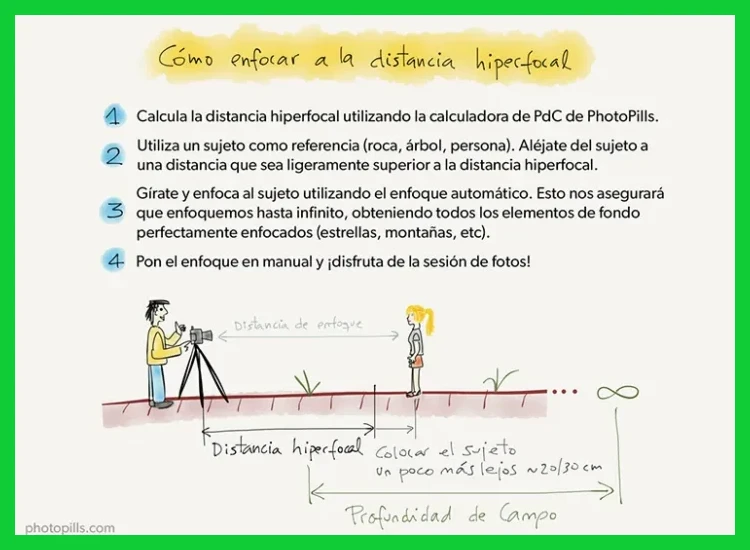 Cómo enfocar a la distancia hiperfocal
1 Calcula la distancia hiperfocal utilizando la calculadora de PdC de PhotoPills.
2 Utiliza un sujeto como referencia (roca, árbol, persona). Aléjate del sujeto a
una distancia que sea ligeramente superior a la distancia hiperfocal.
3 Gírate y enfoca al sujeto utilizando el enfoque automático. Esto nos asegurará
que enfoquemos hasta infinito, obteniendo todos los elementos de fondo
perfectamente enfocados (estrellas, montañas, etc).
4 Pon el enfoque en manual y ¡disfruta de la sesión de fotos!
Distancia de enfoque
∞
Distancia hiperfocal
Colocar el sujeto
un poco más lejos ~20/30 cm
Profundidad de Campo
photopills.com